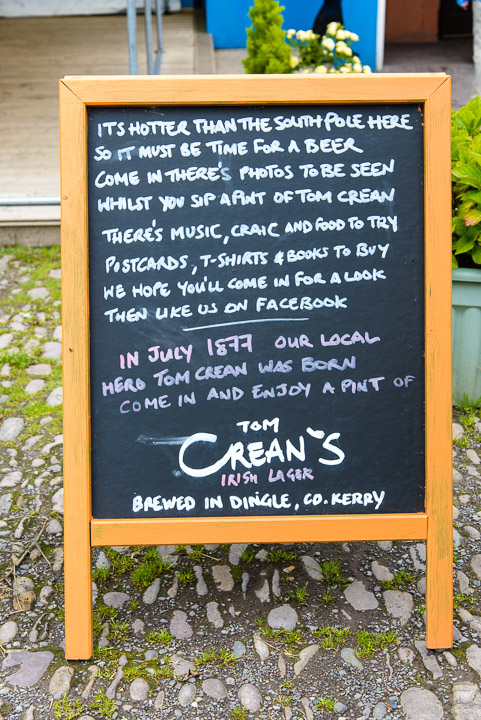 ITS HOTTER THAN THE SOUTH POLE HERE
SO IT MUST BE TIME FOR A BEER
COME IN THERE'S PHOTOS TO BE SEEN
WHILST YOU SIP A PINT OF TOM CREAN
THERE'S MUSIC, CRAIC AND FOOD TO TRY
POSTCARDS, T-SHIRTS & BOOKS TO BUY
WE HOPE YOU'LL COME IN FOR A LOOK
THEN LIKE US ON FACEBOOK
IN JULY 1877 OUR LOCAL
HERO TOM CREAN WAS BORN
COME IN AND ENJOY A PINT OF
TOM
CREAN'S
IRISH LAGER
BREWED IN DINGLE, CO. KERRY